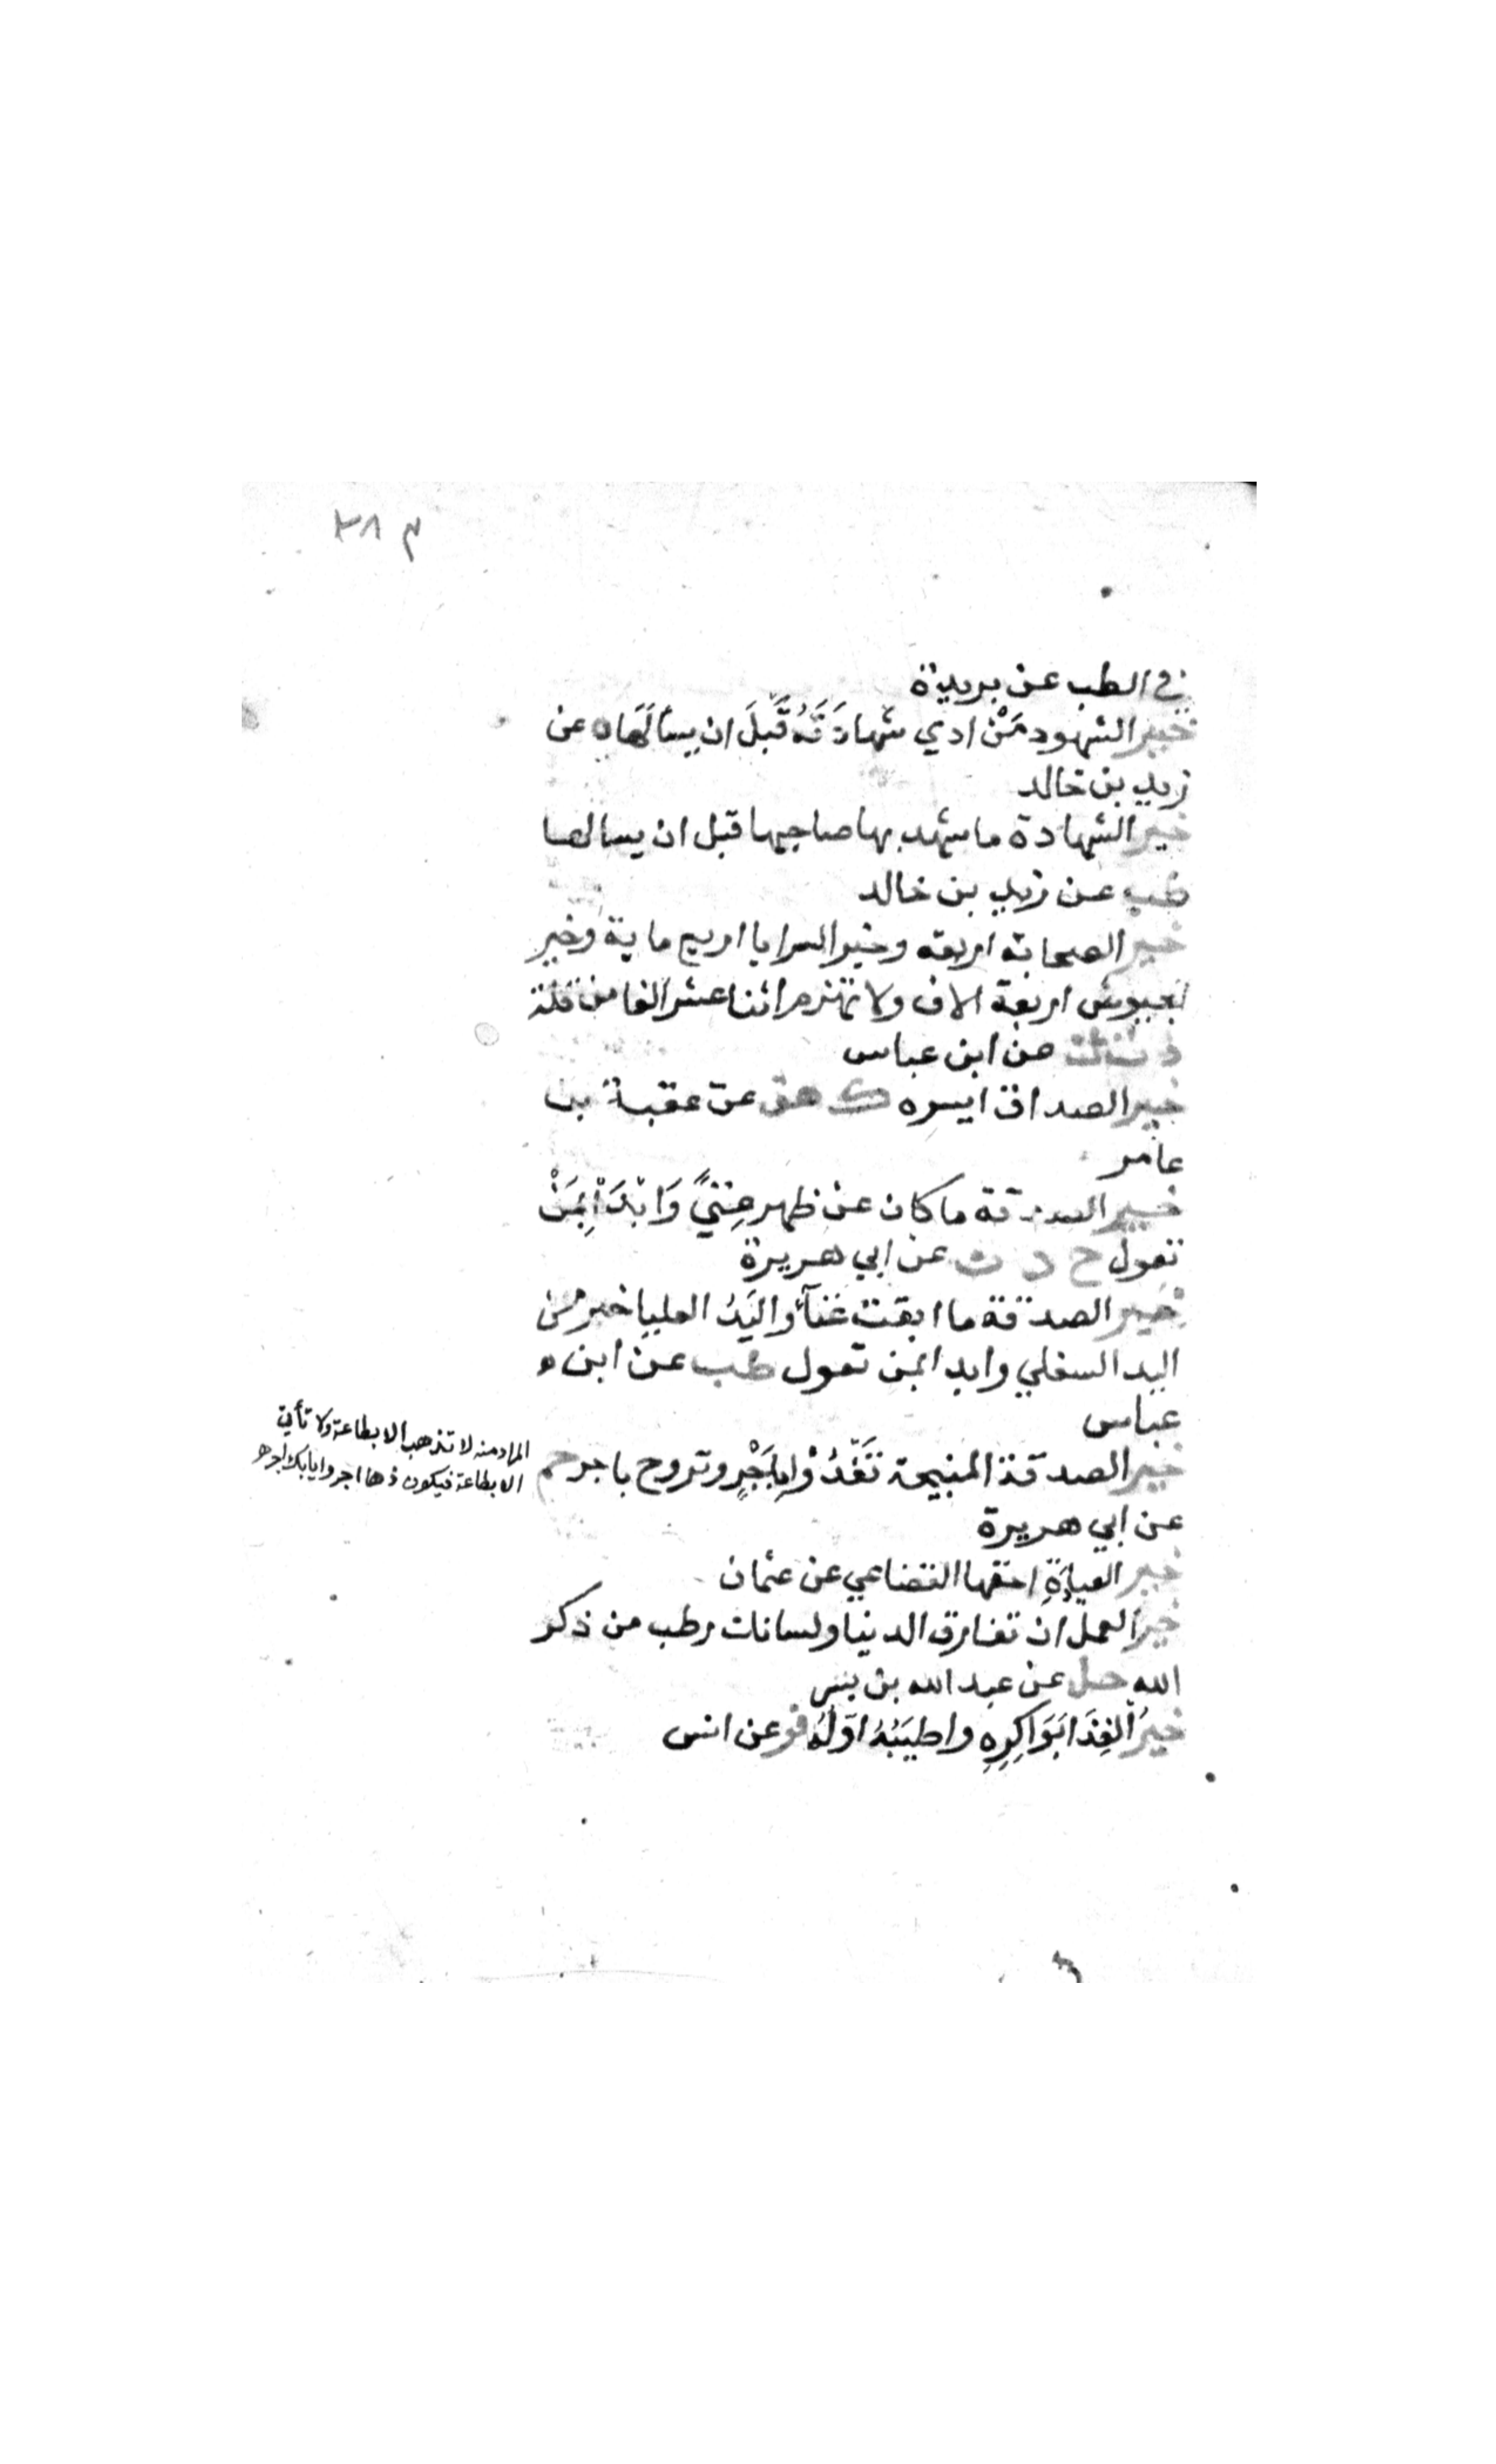 في الطب عن بريدة
خير الشهود مَنْ ادي شهادَتَهُ قَبلَ ان يسألَهَا ه عن
زيد بن خالد
خير الشهادة ما شهد بها صاحبها قبل ان يسالها
طب عن زيد بن خالد
خير الصحابة اربعة وخير السرايا اربع ماية وخير
الجيوش اربعة الاف ولا تهزم اثنا عشر الفا من قلة
د ت ك عن ابن عباس
خير الصداق ايسره ك هق عن عقبة بن
عامر
خير الصدقة ما كان عن ظهر غِنيً وَابْدَأْ بِمَنْ
تعول خ د ن عن ابي هريرة
خير الصدقة ما ابقت غنآً واليَدُ العليا خير من
اليد السفلي وابدا بمن تعول طب عن ابن
عباس
خير الصدقة المنيحة تَغْدُوْا بِاَجْرٍ وتروح باجر حم
المراد منه لا تذهب الا بطاعة ولا تأتي
الا بطاعة فيكون ذهابها اجر وايابك اجر
عن ابي هريرة
خير العيادَةِ اخفها القضاعي عن عثمان
خير العمل ان تفارق الدنيا ولسانك رطب من ذكر
الله حل عن عبد الله بن بسر
خيرُ الغِذَا بَوَاكِرِهِ واطيَبُهُ اوَّلُهُ فر عن انس